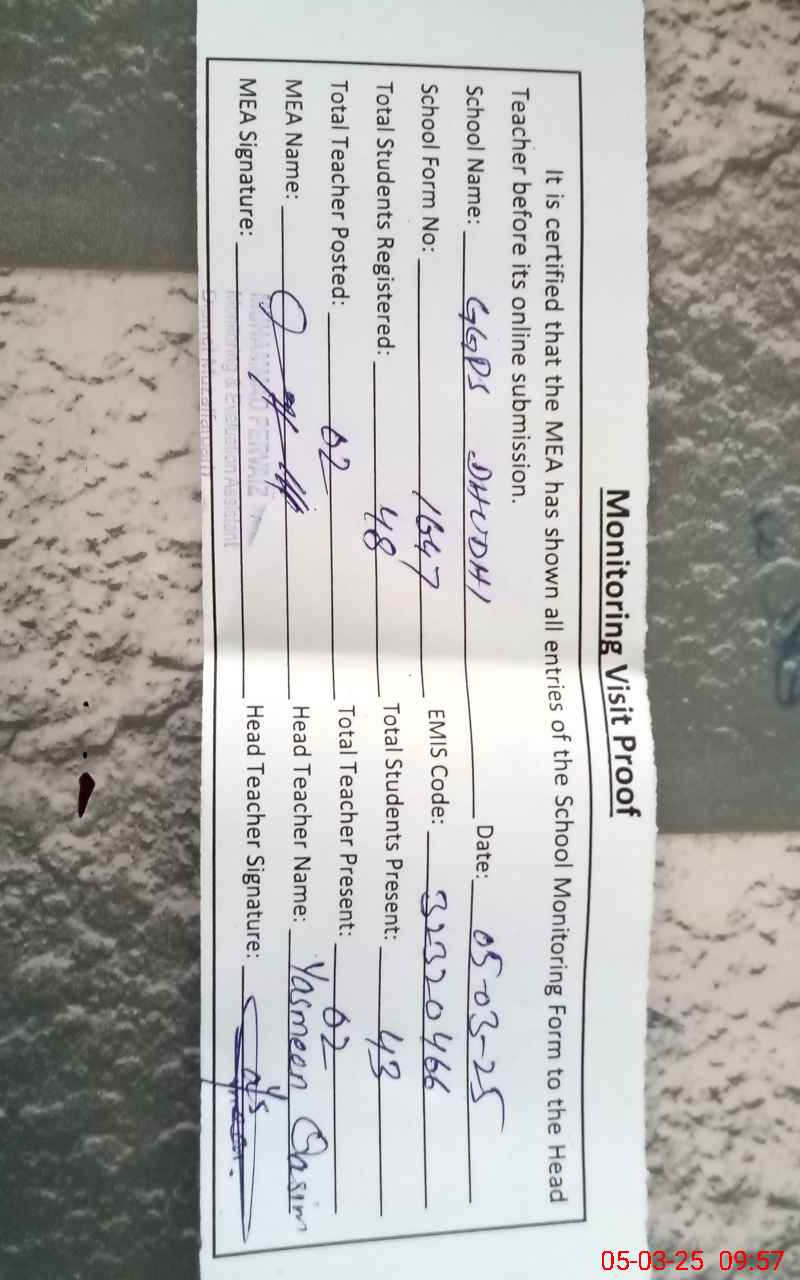 Monitoring Visit Proof
It is certified that the MEA has shown all entries of the School Monitoring Form to the Head
Teacher before its online submission.
School Name: GGPS DHUDHI Date: 05-03-25
School Form No: 1647 EMIS Code: 32320466
Total Students Registered: 48 Total Students Present: 43
Total Teacher Posted: 02 Total Teacher Present: 02
MEA Name: Head Teacher Name: Yasmeen Qasim
MEA Signature: Head Teacher Signature:
MUHAMMAD PERVAIZ
Monitoring & Evaluation Assistant
District Muzaffargarh
05-03-25 09:57